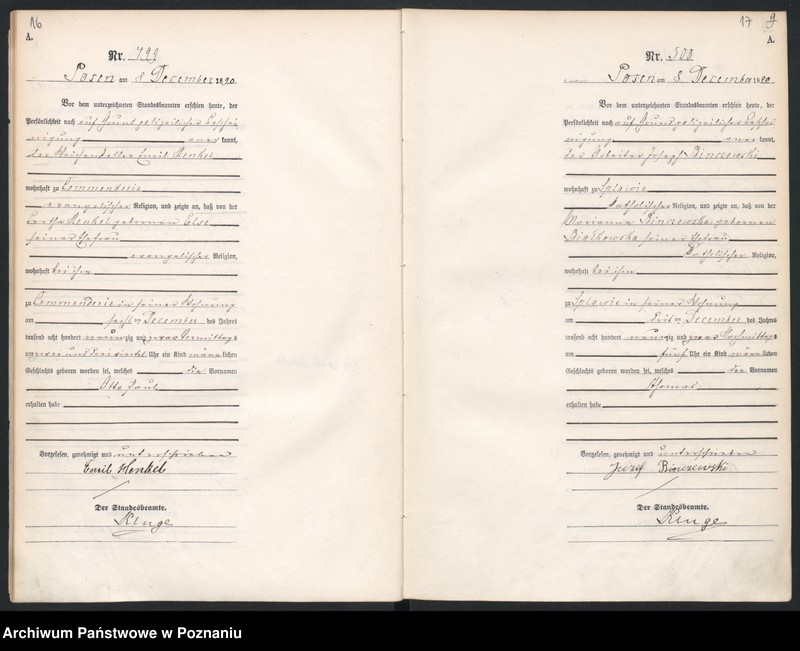 16
A.
Nr. 799
Posen am 8 December 1890
Vor dem unterzeichneten Standesbeamten erschien heute, der
Persönlichkeit nach auf Grund polizeilicher Beschei
nigung kannt,
der Emil Henkel
wohnhaft zu Commenderie
evangelischer Religion, und zeigte an, daß von der
Bertha Henkel geborenen Else
seiner Ehefrau
evangelischer Religion,
wohnhaft bei ihm
zu Commenderie in seiner Wohnung
am December des Jahres
tausend acht hundert neunzig und zwar Vormittags
um Uhr ein Kind männlichen
Geschlechts geboren worden sei, welches die Vornamen
Otto Paul
erhalten habe
Vorgelesen, genehmigt und unterschrieben
Emil Henkel
Der Standesbeamte.
Kluge
17
A.
Nr. 500
Posen am 8 December 1890
Vor dem unterzeichneten Standesbeamten erschien heute, der
Persönlichkeit nach auf Grund polizeilicher Beschei
nigung kannt,
der Arbeiter Joseph Binczewski
wohnhaft zu
katholischer Religion, und zeigte an, daß von der
Marianna Binczewska geborenen
Białkowska seiner Ehefrau
katholischer Religion,
wohnhaft bei ihm
zu in seiner Wohnung
am December des Jahres
tausend acht hundert neunzig und zwar Nachmittags
um fünf Uhr ein Kind männlichen
Geschlechts geboren worden sei, welches den Vornamen
Thomas
erhalten habe
Vorgelesen, genehmigt und unterschrieben
Józef Binczewski
Der Standesbeamte.
Kluge
Archiwum Państwowe w Poznaniu